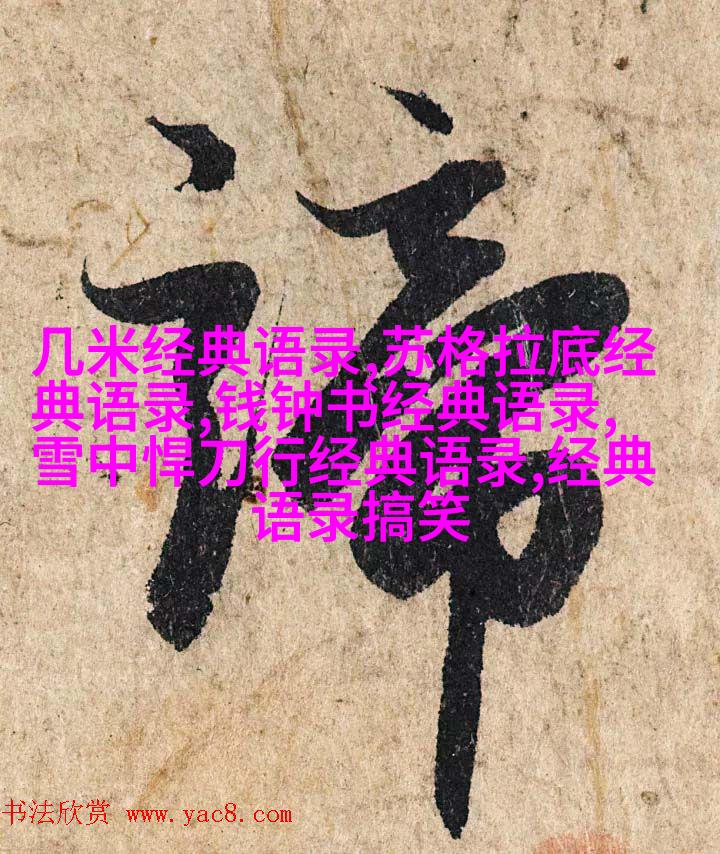 諦
几米经典语录,苏格拉底经
典语录,钱钟书经典语录,
雪中悍刀行经典语录,经典
语录搞笑
书法欣赏 www.yac8.com